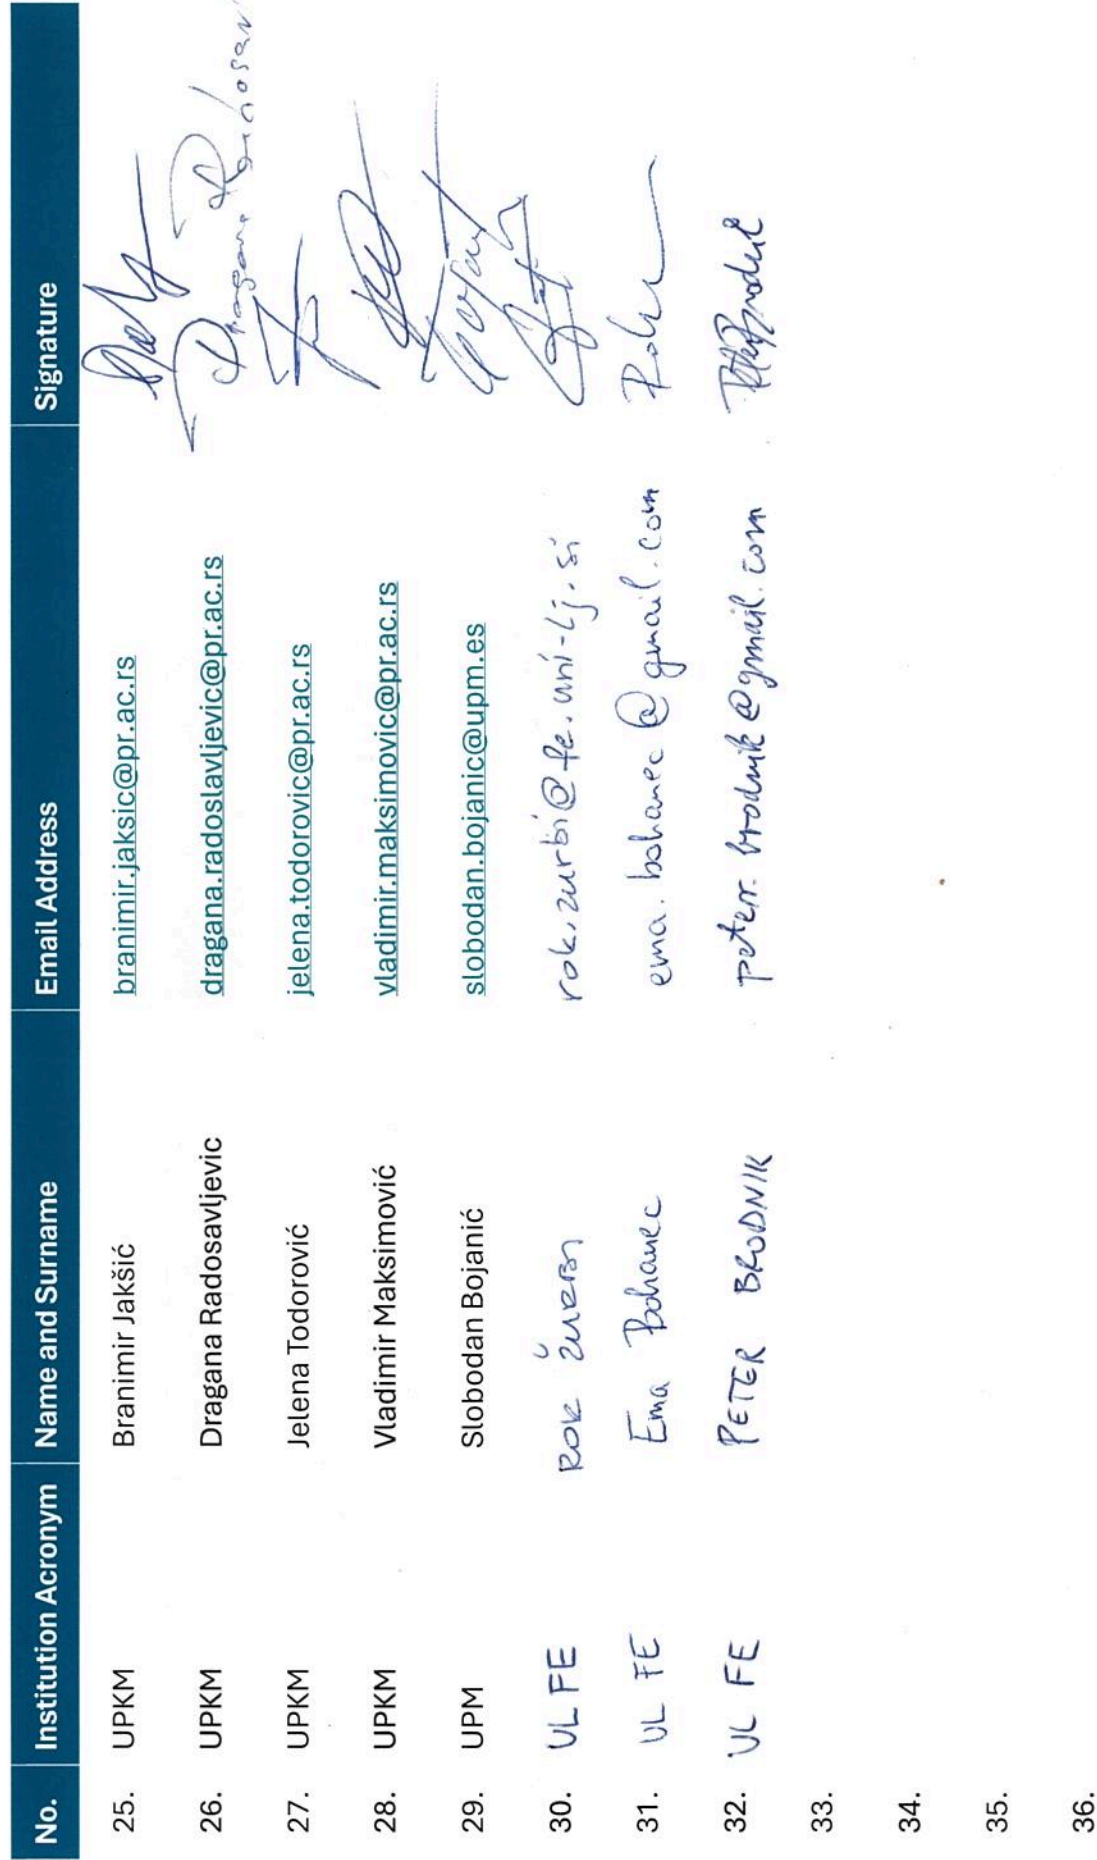 No. Institution Acronym Name and Surname Email Address Signature
25. UPKM Branimir Jakšić branimir.jaksic@pr.ac.rs
26. UPKM Dragana Radosavljevic dragana.radoslavljevic@pr.ac.rs Dragana
27. UPKM Jelena Todorović jelena.todorovic@pr.ac.rs
28. UPKM Vladimir Maksimović vladimir.maksimovic@pr.ac.rs
29. UPM Slobodan Bojanić slobodan.bojanic@upm.es
30. UL FE ROK ŽURBI rok.zurbi@fe.uni-lj.si
31. UL FE Ema Bohanec ema.bohanec@gmail.com
32. UL FE PETER BRODNIK peterr.brodnik@gmail.com
33.
34.
35.
36.